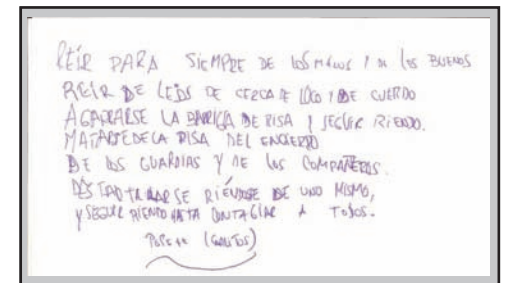 REÍR PARA SIEMPRE DE LOS MALOS Y DE LOS BUENOS
REIR DE LEJOS DE CERCA DE LOCO Y DE CUERDO
AGARRARSE LA BARRIGA DE RISA Y SEGUIR RIENDO.
MATARTE DE LA RISA DEL ENCIERRO
DE LOS GUARDIAS Y DE LOS COMPAÑEROS.
RIÉNDOSE DE UNO MISMO,
Y SEGUIR RIENDO HASTA CONTAGIAR A TODOS.